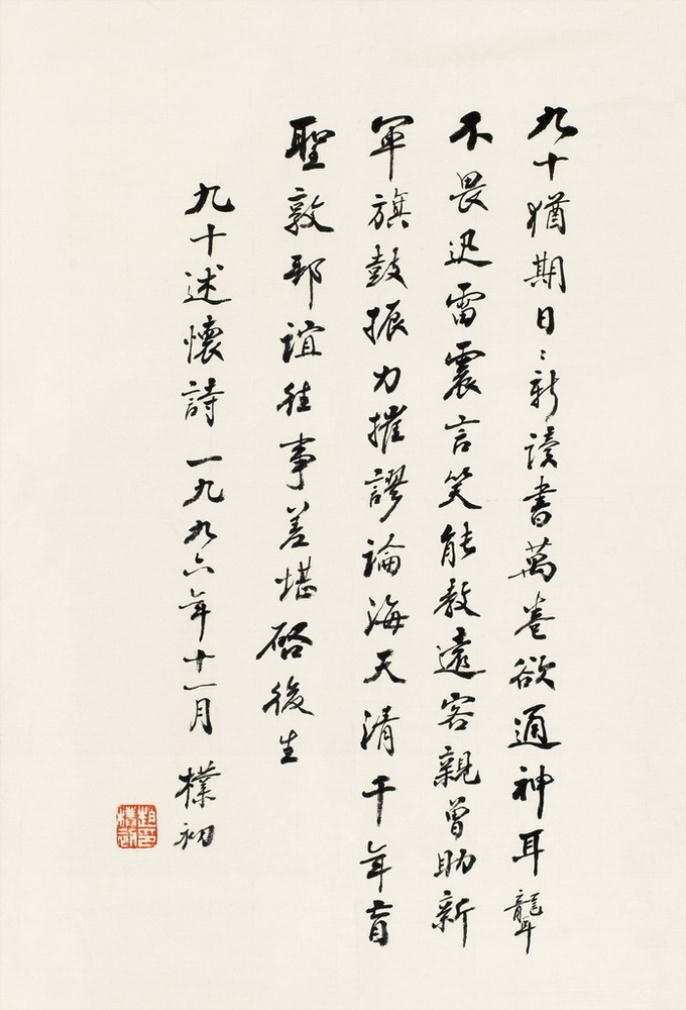 九十猶期日〻新讀書萬卷欲通神耳聾
不畏迅雷震言笑能教遠客親曾助新
軍旗鼓振力摧謬論海天清千年盲
聖敦邦誼往事差堪启後生
九十述懷詩 一九九六年十一月 樸初
趙樸初印